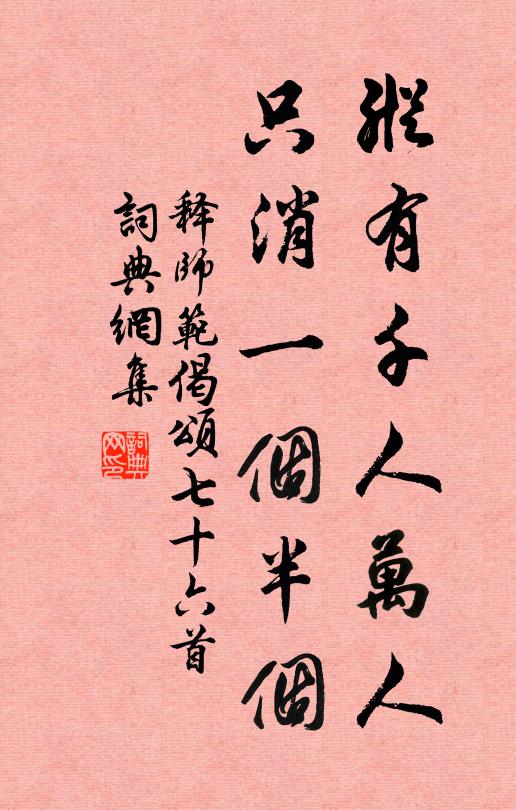 縱有千人萬人
只消一個半個
释師範偈頌七十六首
詞典網集
詞典网印